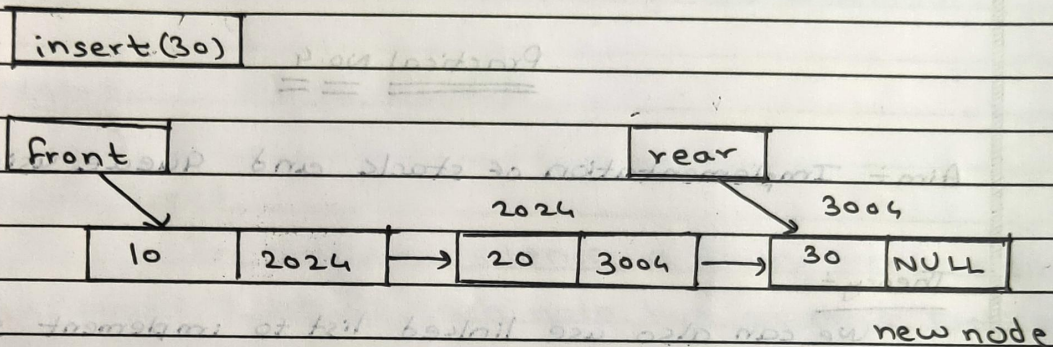 insert.(30)
front rear
2024 3004
10 2024 20 3004 30 NULL
new node